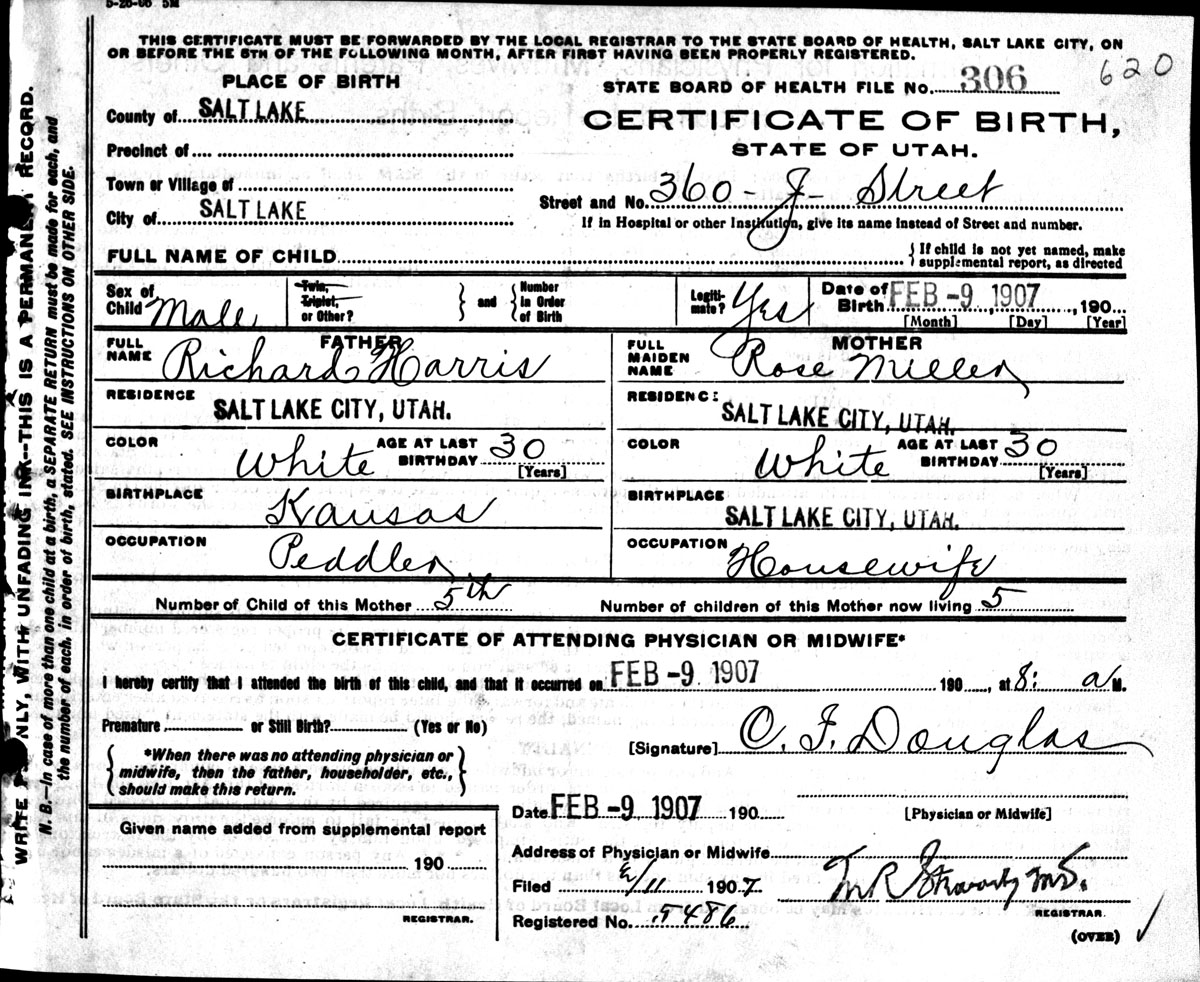 5-28-06 5M
THIS CERTIFICATE MUST BE FORWARDED BY THE LOCAL REGISTRAR TO THE STATE BOARD OF HEALTH, SALT LAKE CITY, ON
OR BEFORE THE 5TH OF THE FOLLOWING MONTH, AFTER FIRST HAVING BEEN PROPERLY REGISTERED.
620
PLACE OF BIRTH
STATE BOARD OF HEALTH FILE NO. 306
County of SALT LAKE
CERTIFICATE OF BIRTH,
Precinct of
STATE OF UTAH.
Town or Village of
Street and No. 360 - J - Street
City of SALT LAKE
If in Hospital or other Institution, give its name instead of Street and number.
FULL NAME OF CHILD
If child is not yet named, make
supplemental report, as directed
Sex of Child Male
Twin, Triplet, or Other? and Number in Order of Birth
Legitimate? Yes
Date of Birth FEB -9 1907, 190
[Month] [Day] [Year]
FATHER
FULL NAME Richard Harris
RESIDENCE
SALT LAKE CITY, UTAH.
COLOR White AGE AT LAST BIRTHDAY 30
[Years]
BIRTHPLACE Kansas
OCCUPATION Peddler
MOTHER
FULL MAIDEN NAME Rose Miller
RESIDENCE
SALT LAKE CITY, UTAH.
COLOR White AGE AT LAST BIRTHDAY 30
[Years]
BIRTHPLACE
SALT LAKE CITY, UTAH.
OCCUPATION Housewife
Number of Child of this Mother 5th Number of children of this Mother now living 5
CERTIFICATE OF ATTENDING PHYSICIAN OR MIDWIFE*
I hereby certify that I attended the birth of this child, and that it occurred on FEB -9 1907 190 , at 8: a M.
Premature or Still Birth? (Yes or No)
[Signature] C. F. Douglas
*When there was no attending physician or
midwife, then the father, householder, etc.,
should make this return.
Date FEB -9 1907 190
[Physician or Midwife]
Given name added from supplemental report
190
REGISTRAR.
Address of Physician or Midwife
Filed 2/11 1907
M.D.
REGISTRAR.
Registered No. 5486
(OVER)
WRITE NLY, WITH UNFADING INK--THIS IS A PERMANE RECORD.
N. B.--In case of more than one child at a birth, a SEPARATE RETURN must be made for each, and
the number of each, in order of birth, stated. SEE INSTRUCTIONS ON OTHER SIDE.